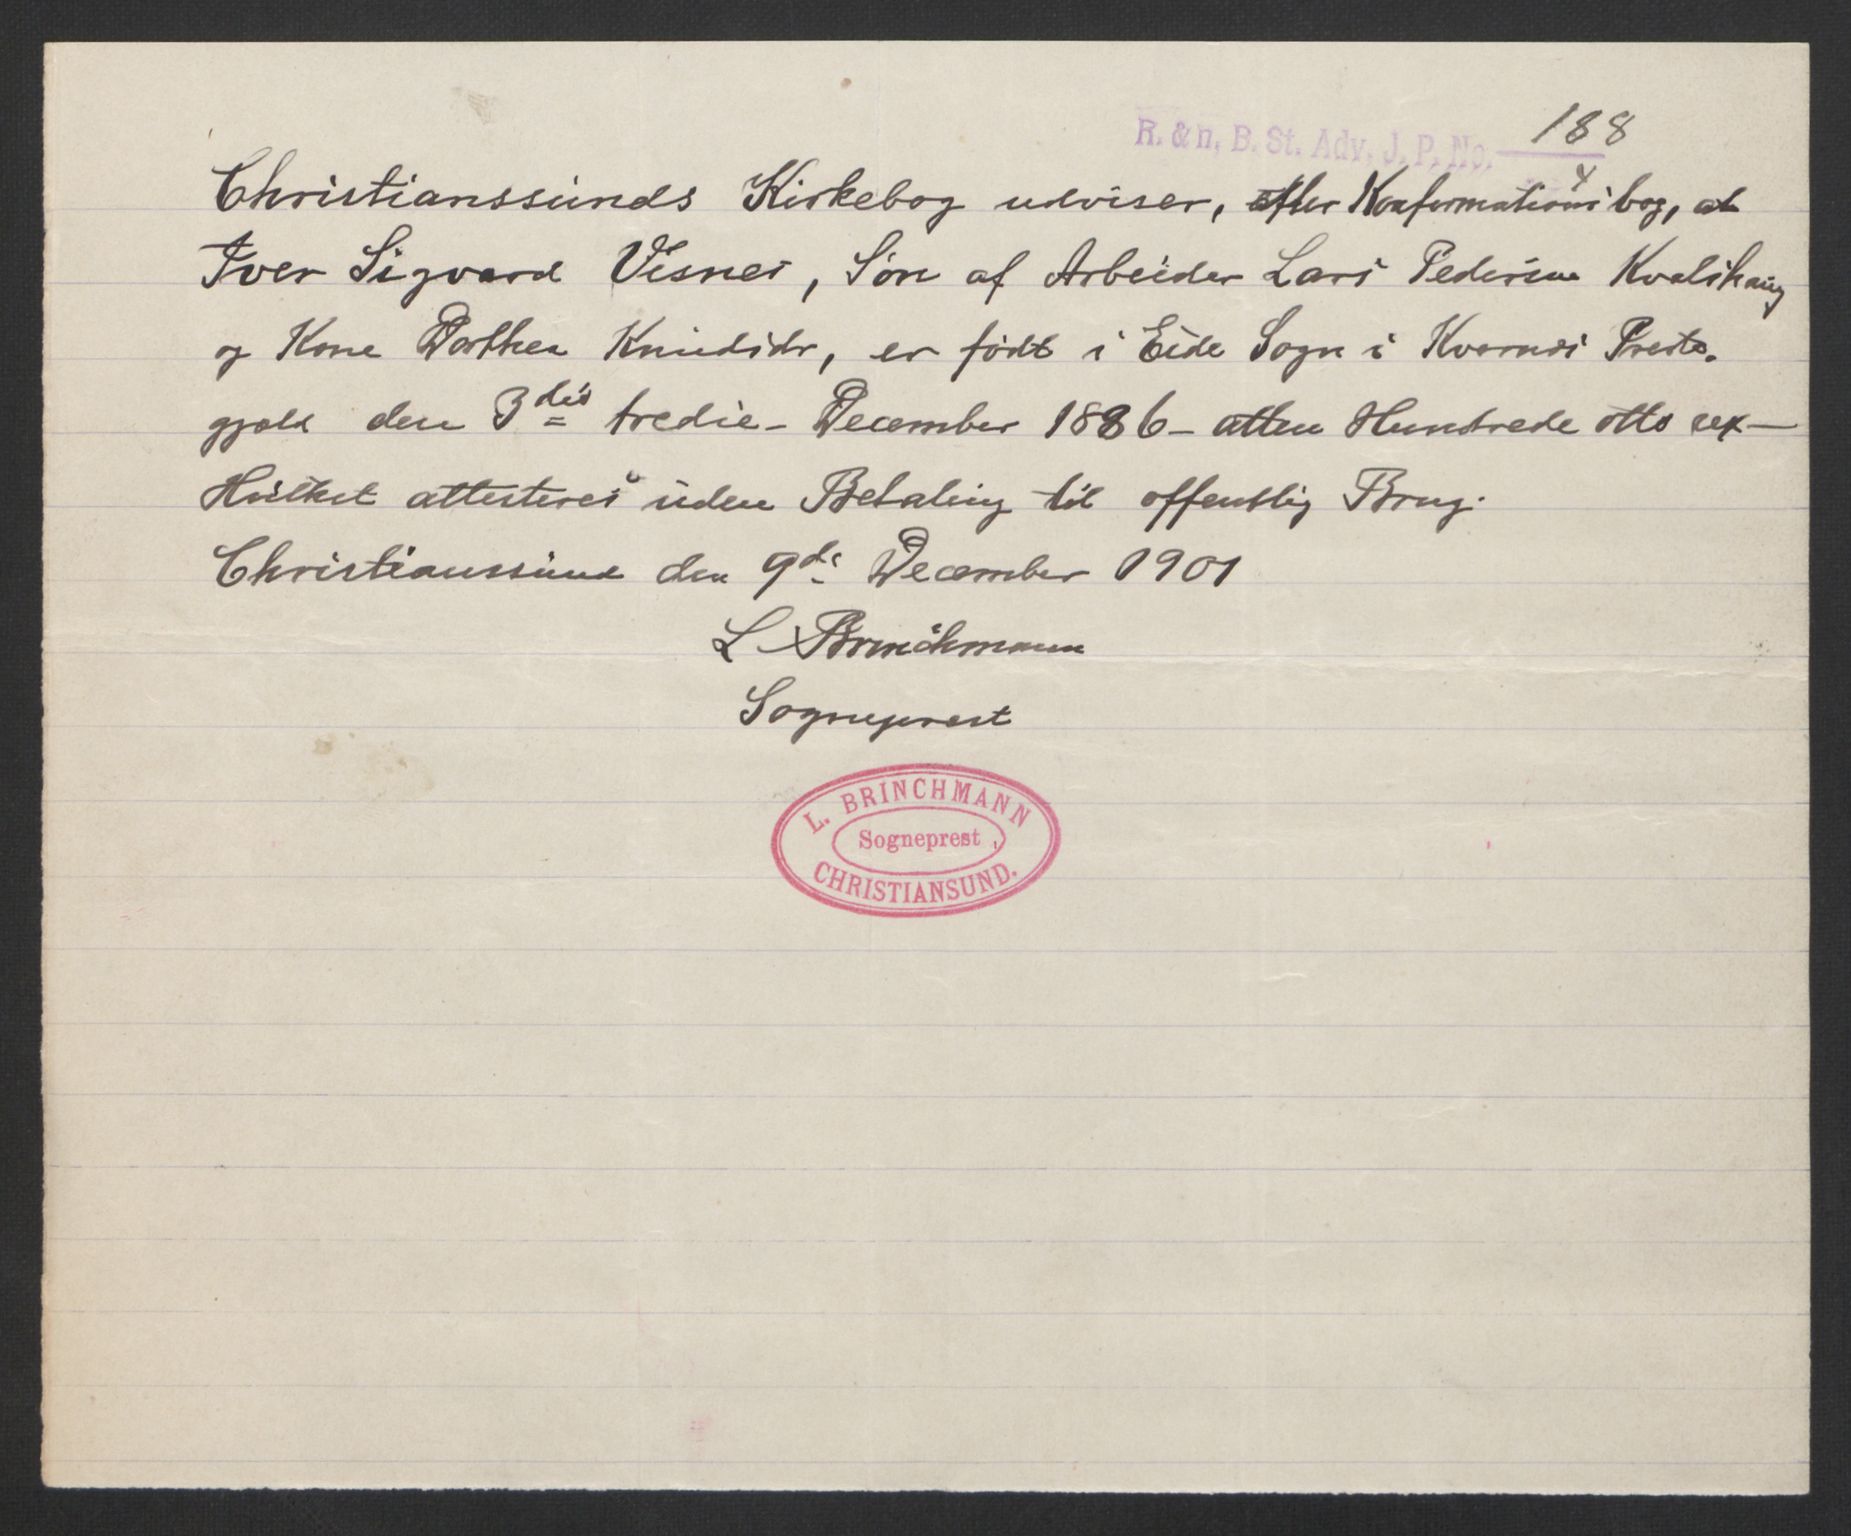 R. & n, B. St. Adv. J. P. No. 188
4
Christianssunds Kirkebog udviser, efter Konfirmationsbog, at
Iver Sigvard Visnes, Søn af Arbeider Lars Pedersen Kvalshaug
og Kone Dorthea Knudsdr, er født i Eide Sogn i Kvernes Preste-
gjeld den 3die tredie - December 1886 - atten Hundrede otti sex -
Hvilket attesteres uden Betaling til offentlig Brug.
Christianssund den 9de December 1901
L Brinchmann
Sogneprest
L. BRINCHMANN
Sogneprest
CHRISTIANSUND.